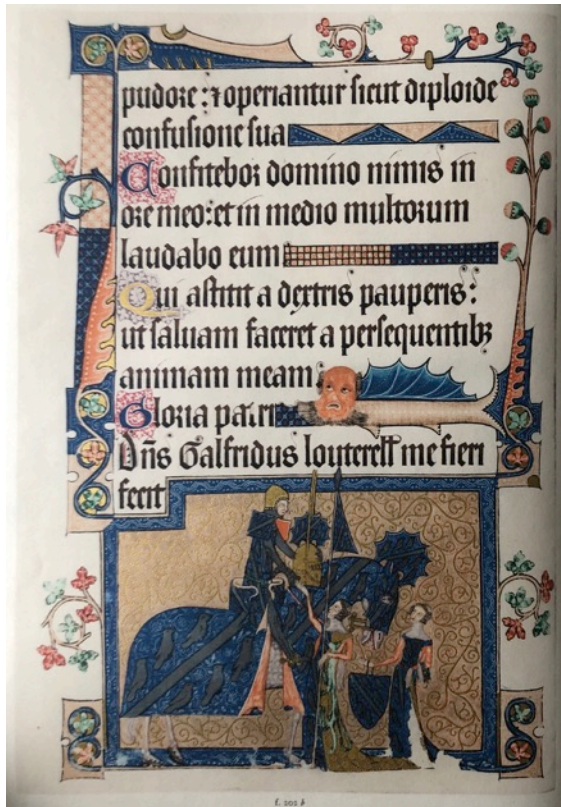 pudore : ⁊ operiantur sicut diploide
confusione sua
Confitebor domino nimis in
ore meo : et in medio multorum
laudabo eum
Qui astitit a dextris pauperis :
ut saluam faceret a persequentibꝫ
animam meam
Gloria patri
Dn̄s Galfridus louterell me fieri
fecit
f. 202 b